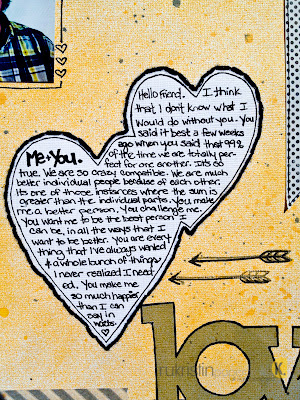 Hello Friend. I think
that I don't know what I
would do without you. You
said it best a few weeks
ago when you said that 99%
of the time we are totally per-
fect for one another. It's so
Me + You.
true. We are so crazy compatible. We are much
better individual people because of each other.
Its one of those instances where the sum is
greater than the individual parts. You make
me a better person. You challenge me.
You want me to be the best person I
can be, in all the ways that I
want to be better. You are every
thing that I've always wanted
& a whole bunch of things
I never realized I need
ed. You make me
so much happier
than I can
say in
words.